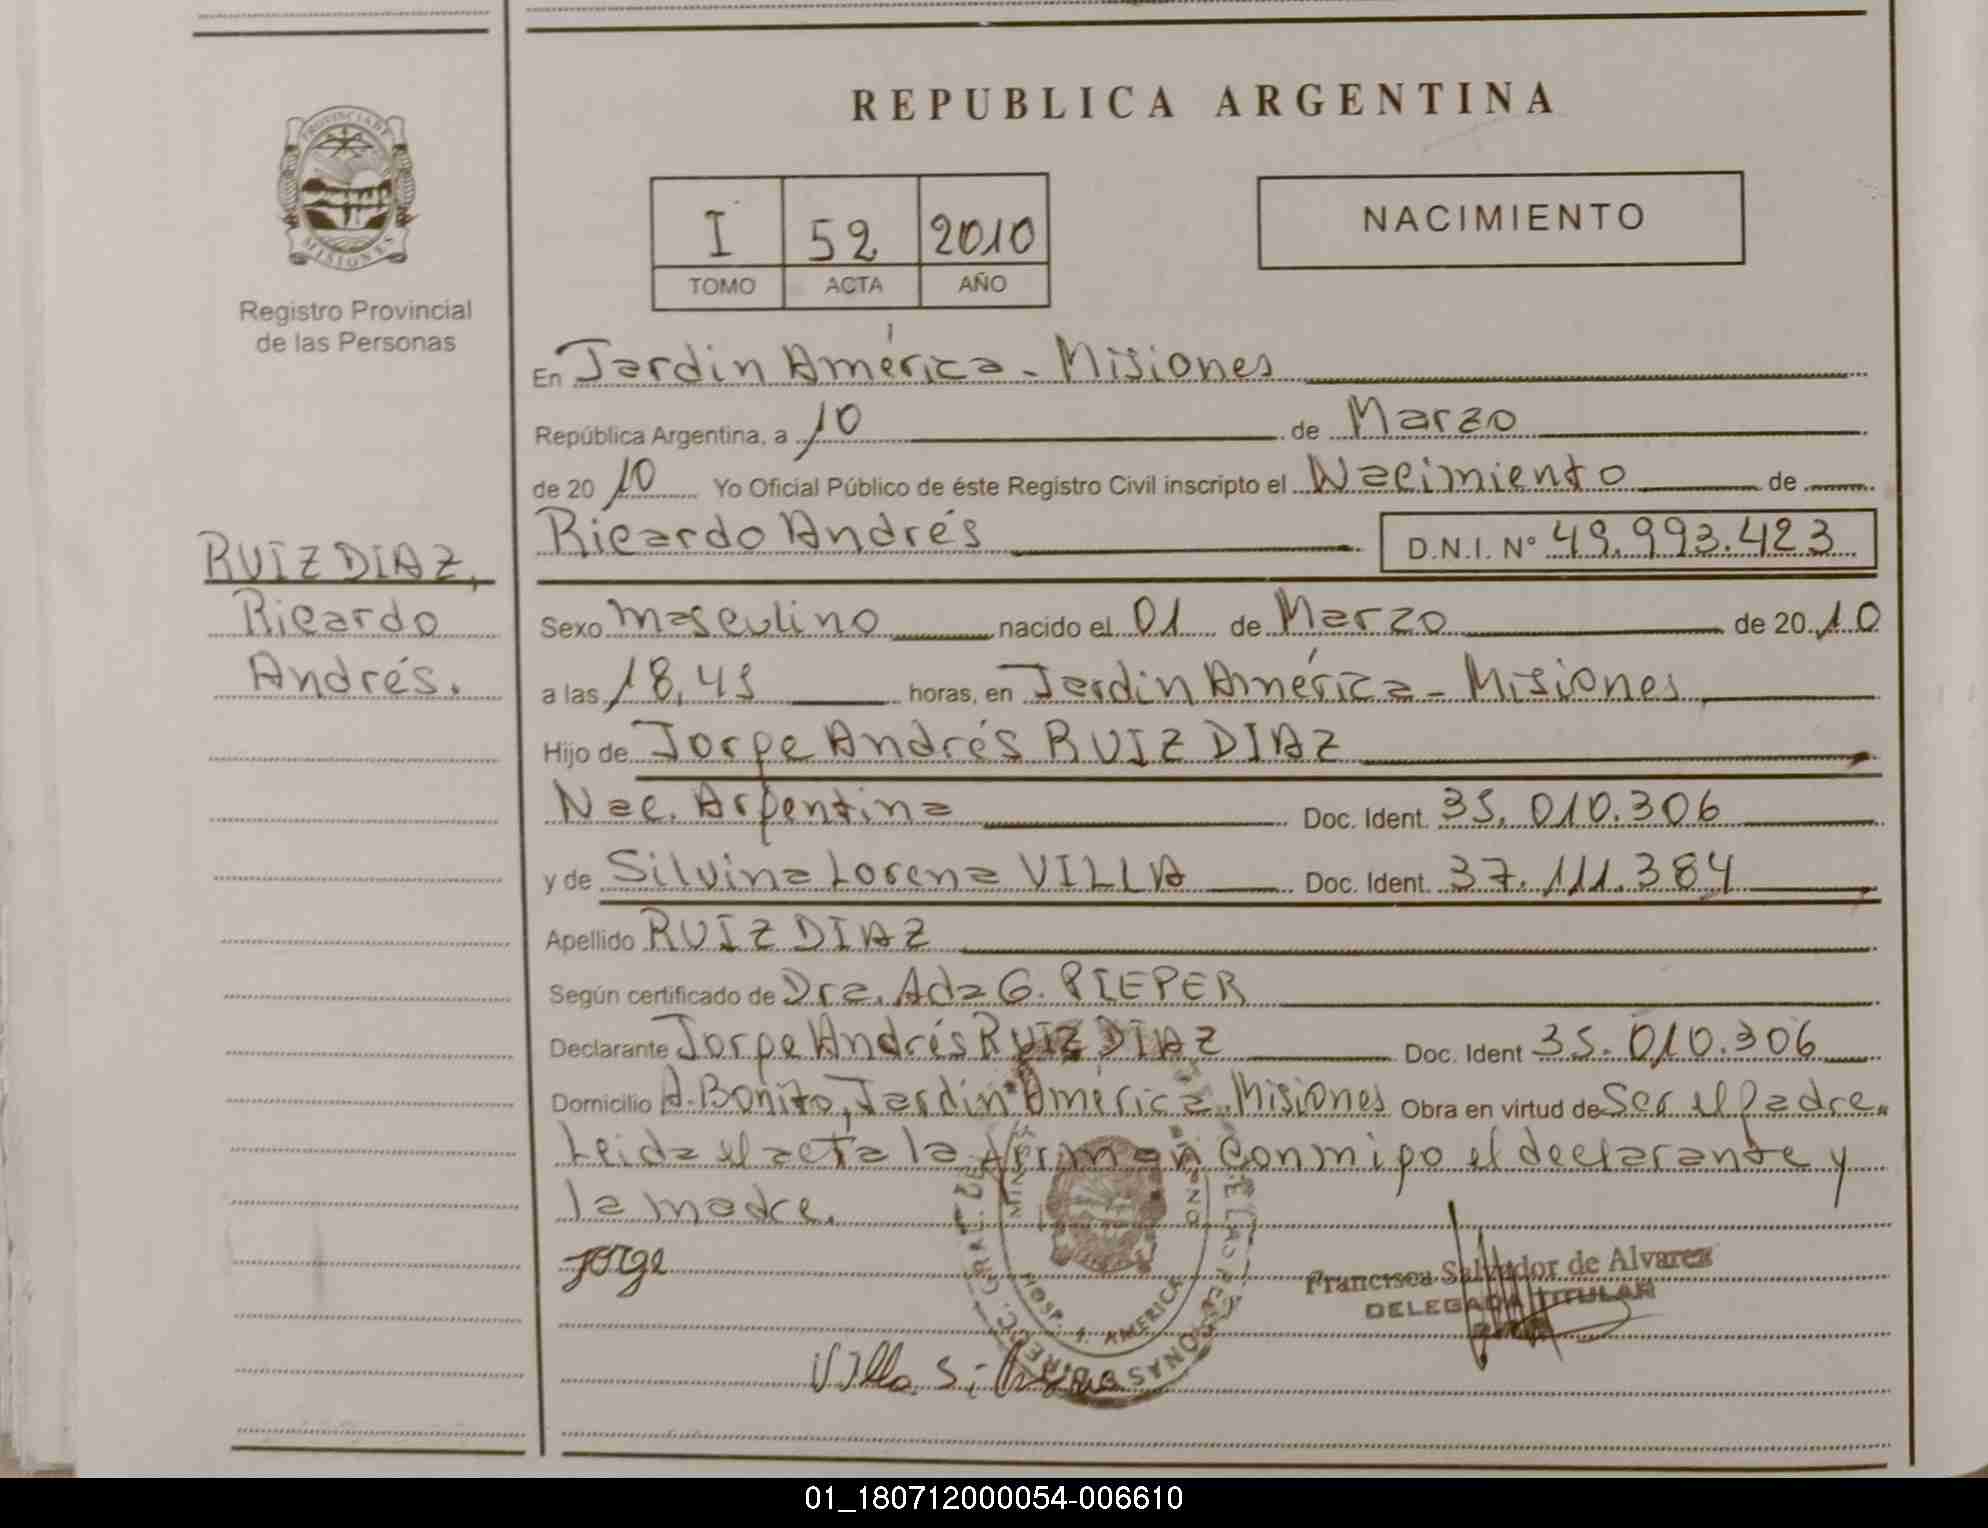 REPUBLICA ARGENTINA
PROVINCIA DE MISIONES
Registro Provincial
de las Personas
I 52 2010
TOMO ACTA AÑO
NACIMIENTO
En Jardín América - Misiones
República Argentina, a 10 de Marzo
de 2010 Yo Oficial Público de éste Registro Civil inscripto el Nacimiento de
Ricardo Andrés D.N.I. Nº 49.993.423
RUIZ DIAZ,
Ricardo
Andrés.
Sexo masculino nacido el 01 de Marzo de 2010
a las 18,45 horas, en Jardín América - Misiones
Hijo de Jorge Andrés RUIZ DIAZ
Nac. Argentina Doc. Ident. 35.010.306
y de Silvina Lorena VILLA Doc. Ident. 37.111.384
Apellido RUIZ DIAZ
Según certificado de Dra. Ada G. PIEPER
Declarante Jorge Andrés RUIZ DIAZ Doc. Ident 35.010.306
Domicilio A. Bonito, Jardín América - Misiones Obra en virtud de Ser el padre.
Leida el acta la firman conmigo el declarante y
la madre.
Jorge
Francisca Salvador de Alvarez
DELEGADA TITULAR
Villa Silvina
HOSP. J. AMERICA
01_180712000054-006610